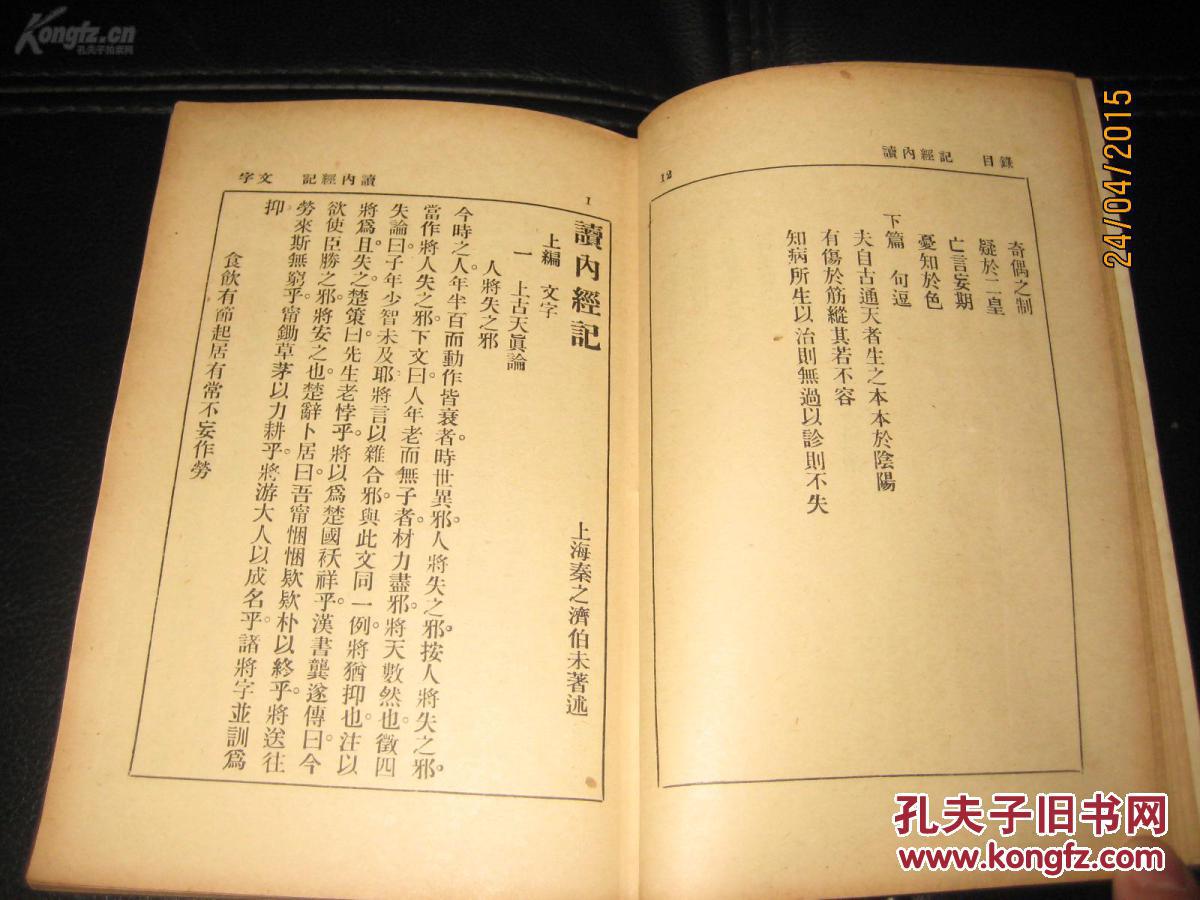 Kongfz.cn
孔夫子拍卖网
24/04/2015
讀內經記　目錄
12
奇偶之制
疑於二皇
亡言妄期
憂知於色
下篇　句逗
夫自古通天者生之本本於陰陽
有傷於筋縱其若不容
知病所生以治則無過以診則不失
讀內經記　文字
1
讀內經記
上海秦之濟伯未著述
上編　文字
一　上古天眞論
人將失之邪
今時之人。年半百而動作皆衰者。時世異邪。人將失之邪。按人將失之邪。
當作將人失之邪。下文曰。人年老而無子者。材力盡邪。將天數然也。徵四
失論曰。子年少智未及耶。將言以雜合邪。與此文同一例。將猶抑也。注以
將爲且。失之。楚策曰。先生老悖乎。將以爲楚國袄祥乎。漢書龔遂傳曰。今
欲使臣勝之邪。將安之也。楚辭卜居曰。吾甯悃悃欵欵朴以終乎。將送往
勞來斯無窮乎。甯鋤草茅以力耕乎。將游大人以成名乎。諸將字並訓爲
抑
食飲有節起居有常不妄作勞
孔夫子旧书网
www.kongfz.com